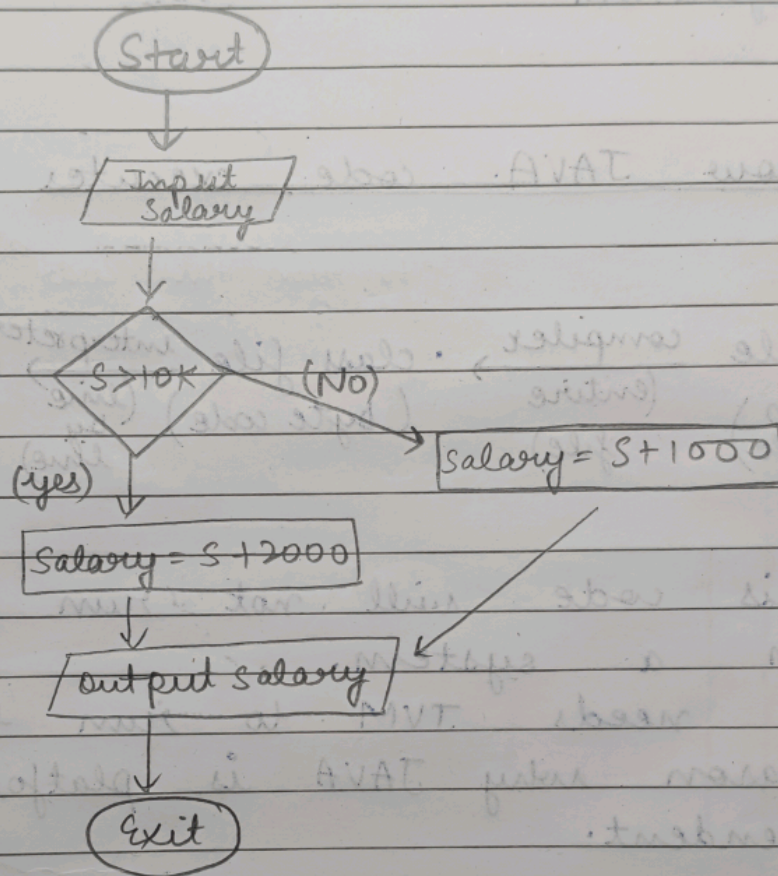 Start
Input
Salary
S>10K
(No)
(yes)
Salary = S+1000
Salary = S+2000
output salary
Exit